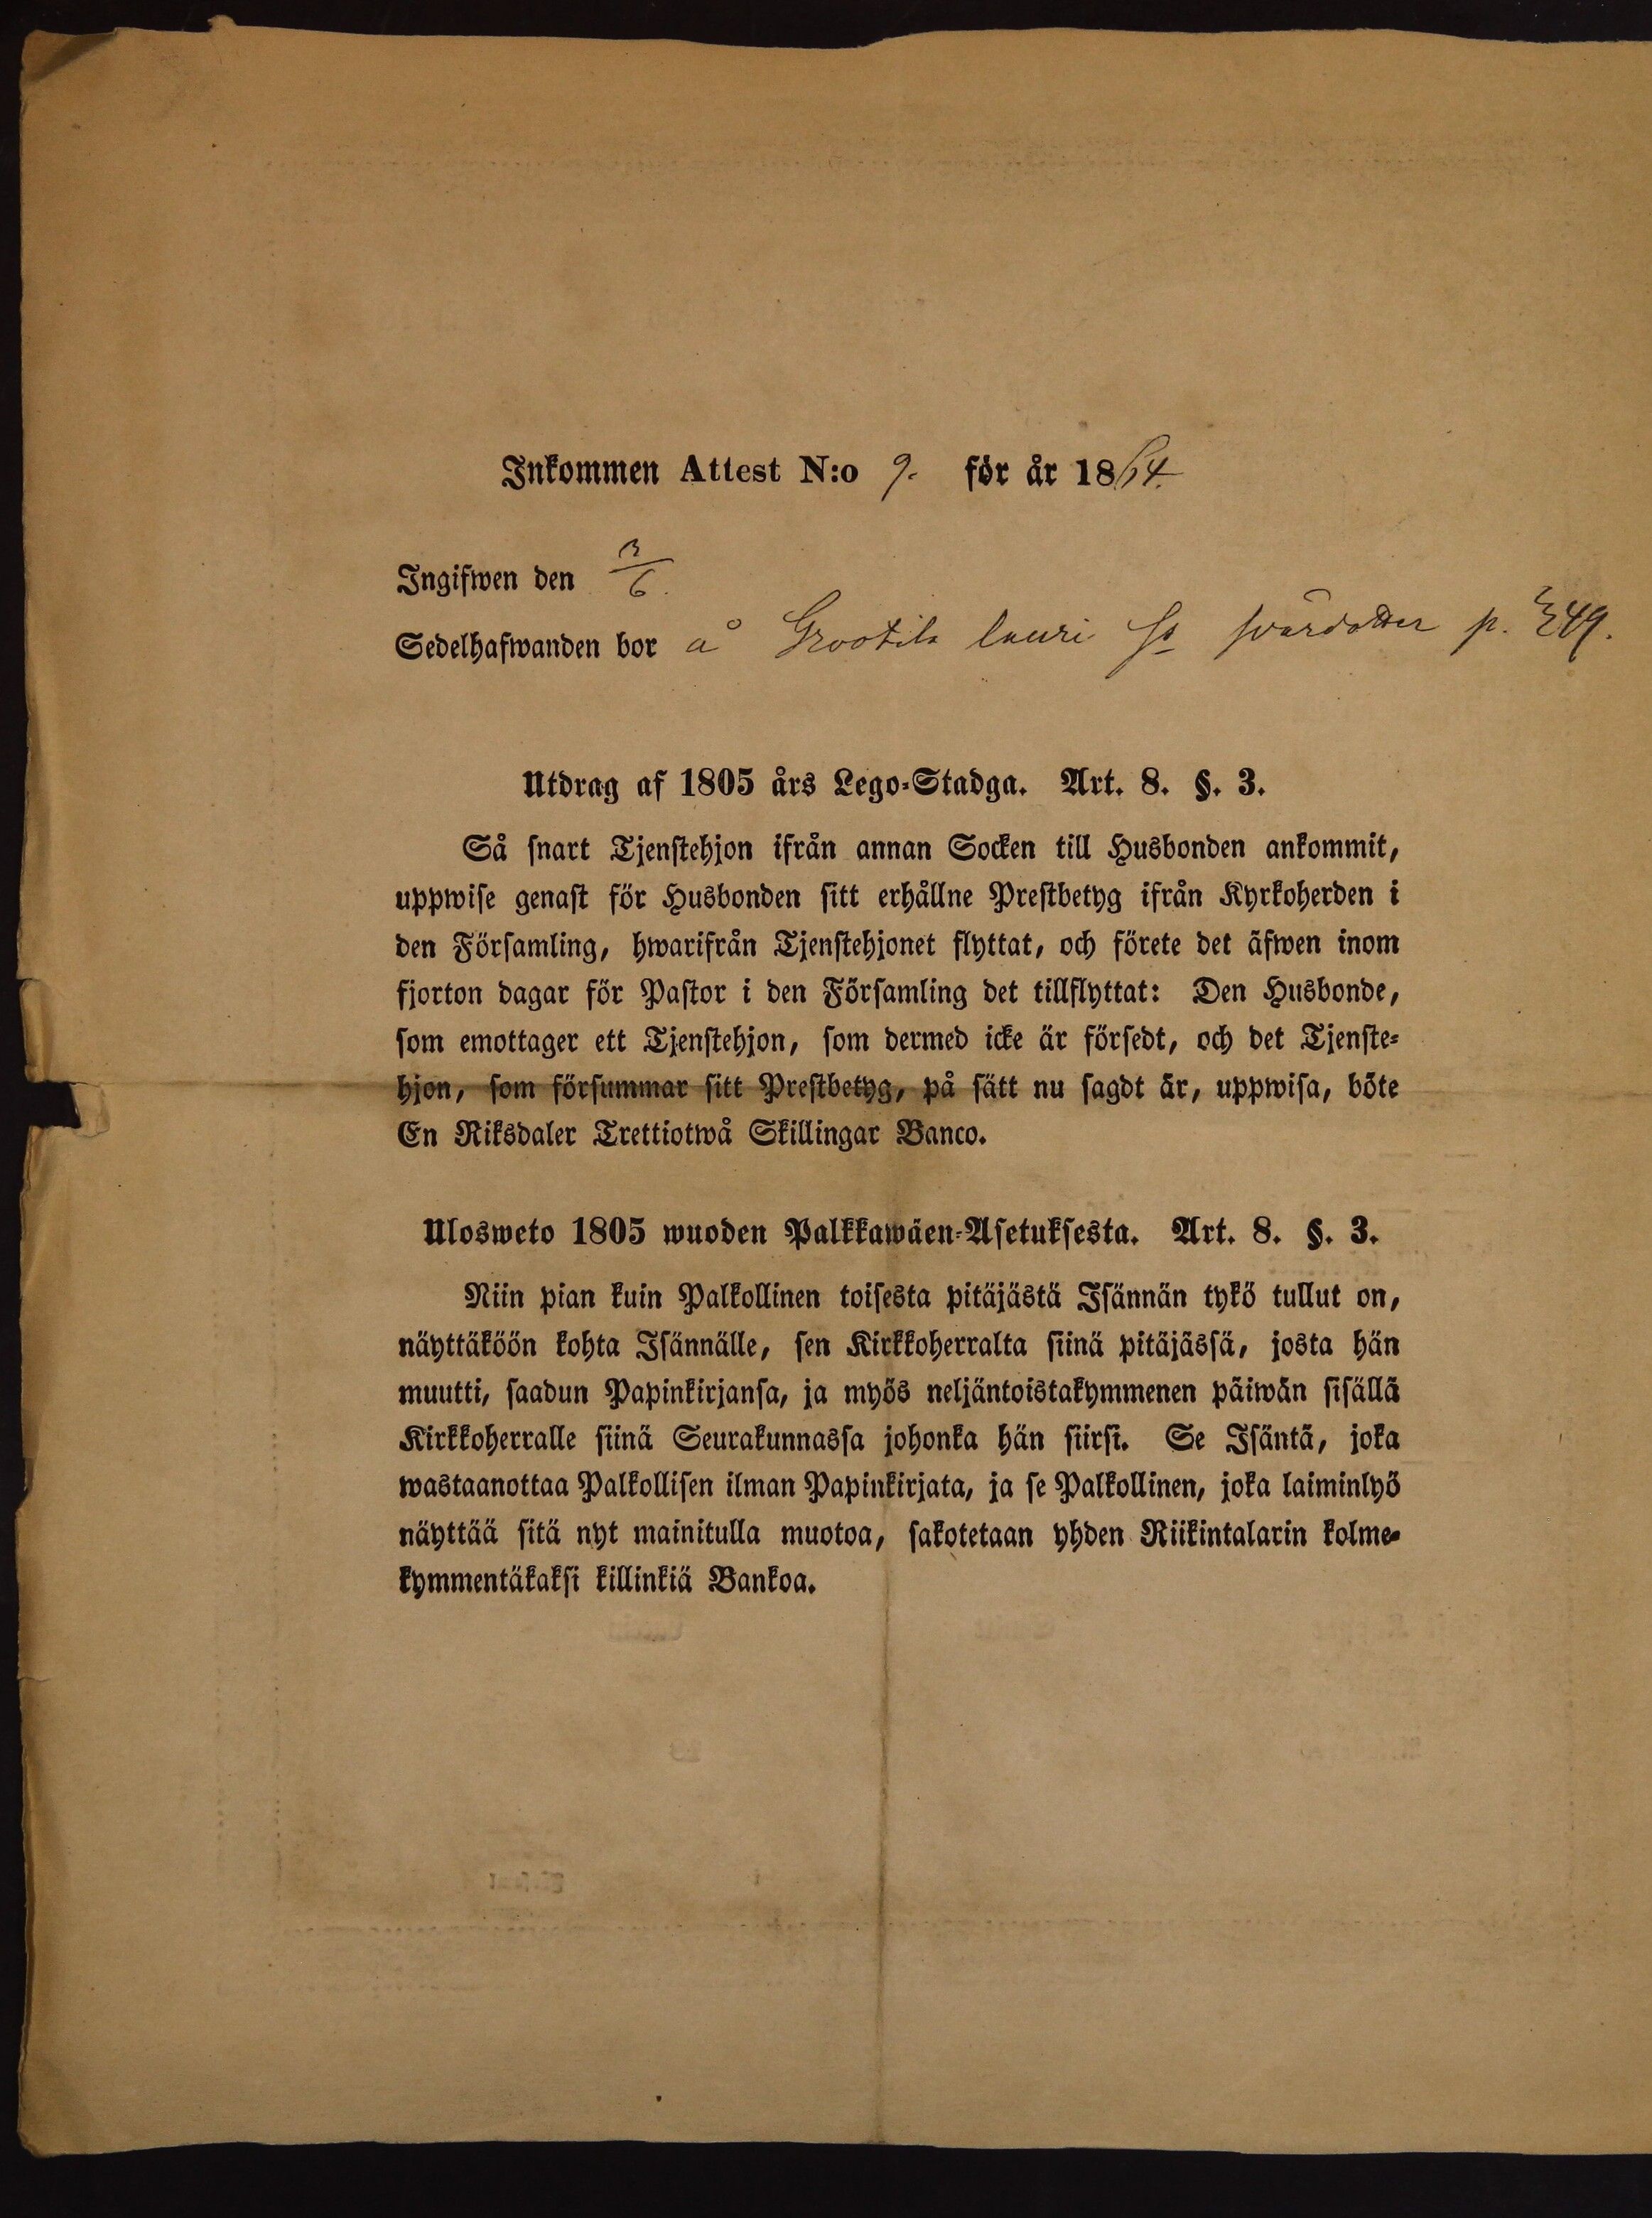 Inkommen Attest N:o 9. för år 1864.
Ingifwen den 3/6.
Sedelhafwanden bor å Grootila lauri svärdotter p. 249.
Utdrag af 1805 års Lego-Stadga. Art. 8. §. 3.
Så snart Tjenstehjon ifrån annan Socken till Husbonden ankommit,
uppwise genast för Husbonden sitt erhållne Prestbetyg ifrån Kyrkoherden i
den Församling, hwarifrån Tjenstehjonet flyttat, och förete det äfwen inom
fjorton dagar för Pastor i den Församling det tillflyttat: Den Husbonde,
som emottager ett Tjenstehjon, som dermed icke är försedt, och det Tjenste-
hjon, som försummar sitt Prestbetyg, på sätt nu sagdt är, uppwisa, böte
En Riksdaler Trettiotwå Skillingar Banco.
Ulosweto 1805 wuoden Palkkawäen-Asetuksesta. Art. 8. §. 3.
Niin pian kuin Palkollinen toisesta pitäjästä Isännän tykö tullut on,
näyttäköön kohta Isännälle, sen Kirkkoherralta siinä pitäjässä, josta hän
muutti, saadun Papinkirjansa, ja myös neljäntoistakymmenen päiwän sisällä
Kirkkoherralle siinä Seurakunnassa johonka hän siirsi. Se Isäntä, joka
wastaanottaa Palkollisen ilman Papinkirjata, ja se Palkollinen, joka laiminlyö
näyttää sitä nyt mainitulla muotoa, sakotetaan yhden Riikintalarin kolme-
kymmentäkaksi killinkiä Bankoa.